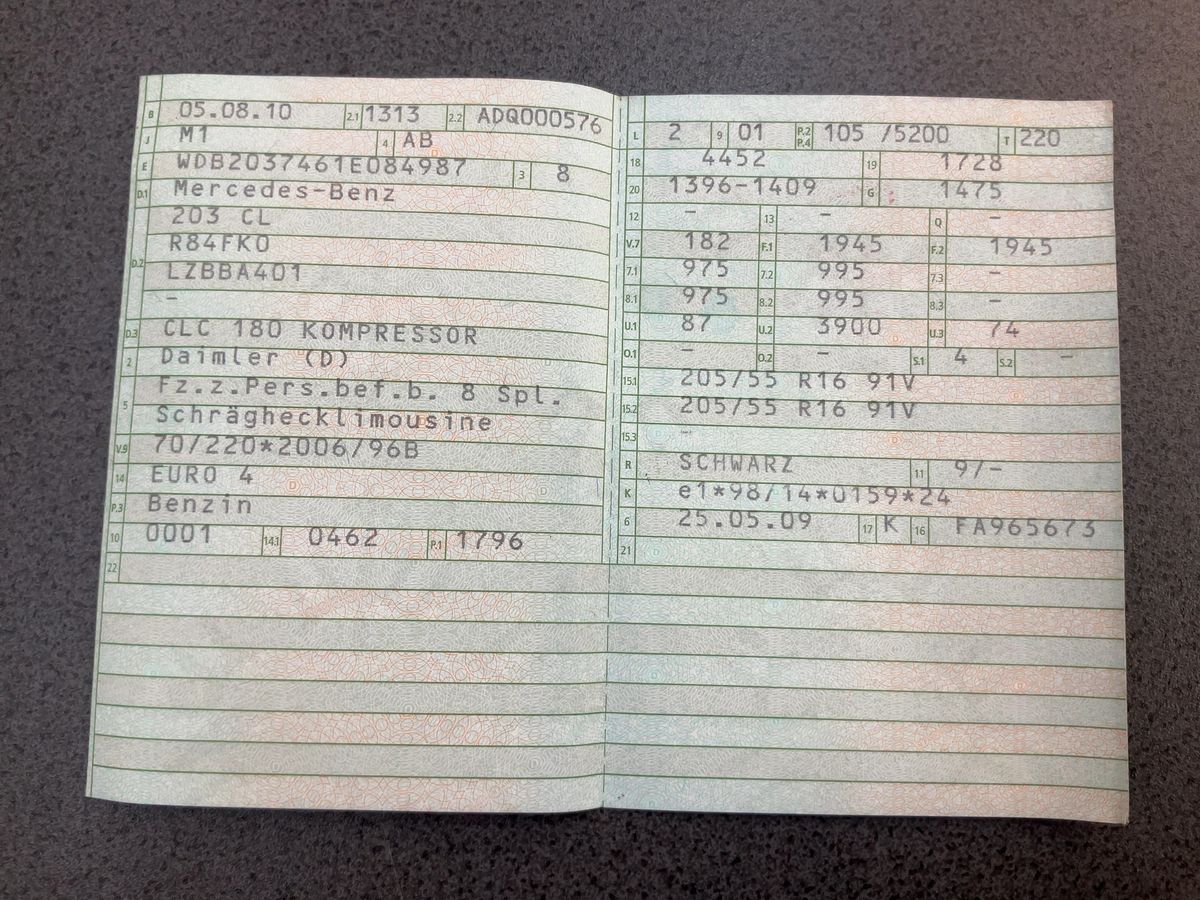 B 05.08.10 2.1 1313 2.2 ADQ000576
J M1 4 AB
E WDB2037461E084987 3 8
D.1 Mercedes-Benz
203 CL
D.2 R84FK0
LZBBA401
-
D.3 CLC 180 KOMPRESSOR
2 Daimler (D)
5 Fz.z.Pers.bef.b. 8 Spl.
Schräghecklimousine
V.9 70/220*2006/96B
14 EURO 4
P.3 Benzin
10 0001 14.1 0462 P.1 1796
22
L 2 9 01 P.2 P.4 105 /5200 T 220
18 4452 19 1728
20 1396-1409 G 1475
12 - 13 - Q -
V.7 182 F.1 1945 F.2 1945
7.1 975 7.2 995 7.3 -
8.1 975 8.2 995 8.3 -
U.1 87 U.2 3900 U.3 74
O.1 - O.2 - S.1 4 S.2 -
15.1 205/55 R16 91V
15.2 205/55 R16 91V
15.3 -
R SCHWARZ 11 9/-
K e1*98/14*0159*24
6 25.05.09 17 K 16 FA965673
21